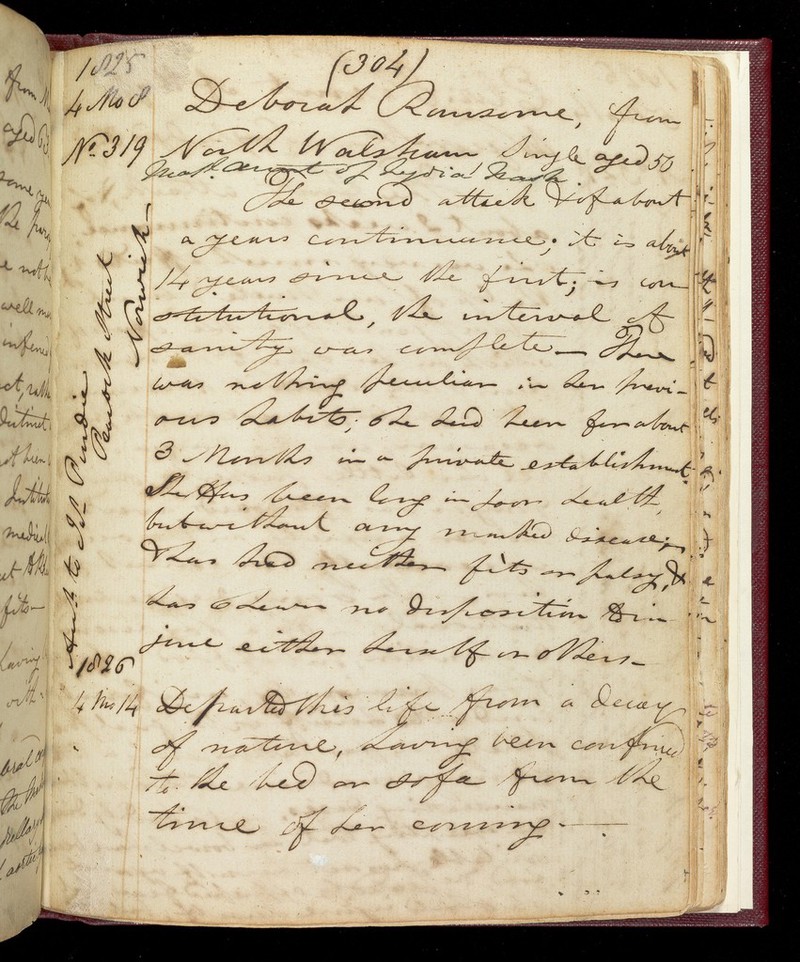 (304)
1825
4 Mo 8
No. 319
Deborah Ransome, from
North Walsham Single aged 50
Matl. aunt of Lydia Nash
The second attack & of about
a years continuance; it is about
14 years since the first; is con
stitutional, the interval of
sanity was complete — There
was nothing peculiar in her previ-
ous habits; she had been for about
3 Months in a private establishment.
She Has been long in poor health,
but without any marked disease;
& has had neither fits or palsy, &
has shewn no disposition to in
jure either herself or others —
Aunt to Is. Purdie
Peacock Street
Norwich —
1826
4 Mo 14
Departed this life from a decay
of nature, having been confined
to the bed or sofa from the
time of her coming. —
from
aged 63
some
the
well
medical
fits —
having